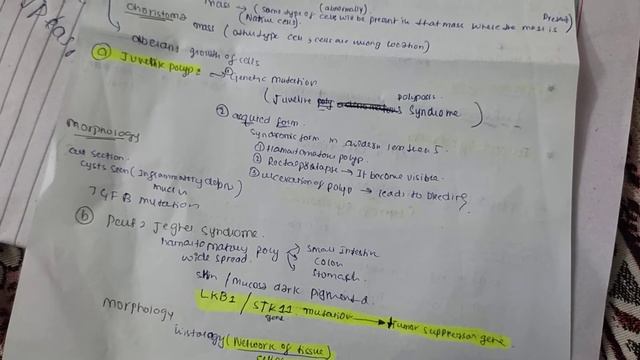 mass → (same type of cells will be present in that mass where the mass is Present)
(abnormally)
(Native cells)
Choristoma
mass (other type cells, cells are wrong location)
aberant growth of cells
(a) Juvenile polyp: → ① Genetic mutation
(Juvenile polyposis Syndrome)
② acquired form.
Syndromic form in children less than 5
① Hamartomatous polyp.
② Rectal prolapse → It become visible.
③ ulceration of polyp → leads to bleeding
Morphology
cut section.
Cysts seen (Inflammatory debris)
mucin
TGFB mutation
(b) Peutz Jegher Syndrome.
Hamartomatous poly
wide spread.
Small Intestine
Colon
Stomach.
skin / mucosa dark pigmented.
LKB1 / STK11 mutation → tumor suppressor gene.
gene
Morphology
histology (Network of tissue)